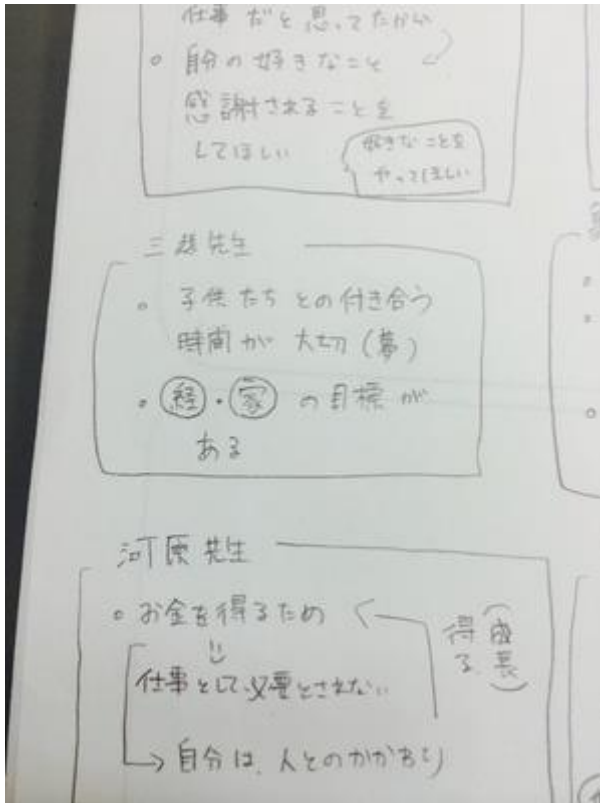 仕事だと思ってたから
。自分の好きなこと
感謝されることを
してほしい
好きなことを
やってほしい
先生
。子供たちとの付き合う
時間が大切(夢)
。経・家の目標が
ある
河原先生
。お金を得るため
仕事として必要とされない
(成長)
得る
自分は、人とのかかわり